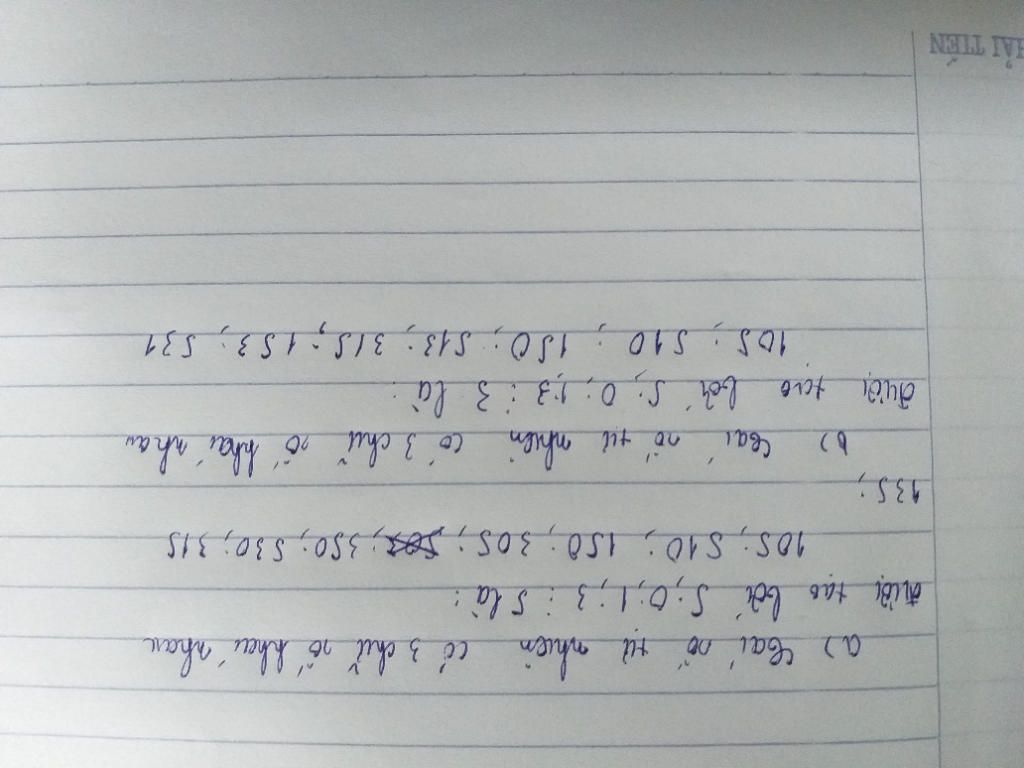 a) Các số tự nhiên có 3 chữ số khác nhau
được tạo bởi 5; 0; 1; 3 ⋮ 5 là:
105; 510; 150; 305; 350; 530; 315
135;
b) Các số tự nhiên có 3 chữ số khác nhau
được tạo bởi 5; 0; 1; 3 ⋮ 3 là:
105; 510; 150; 513; 315; 153; 531
HẢI TIẾN